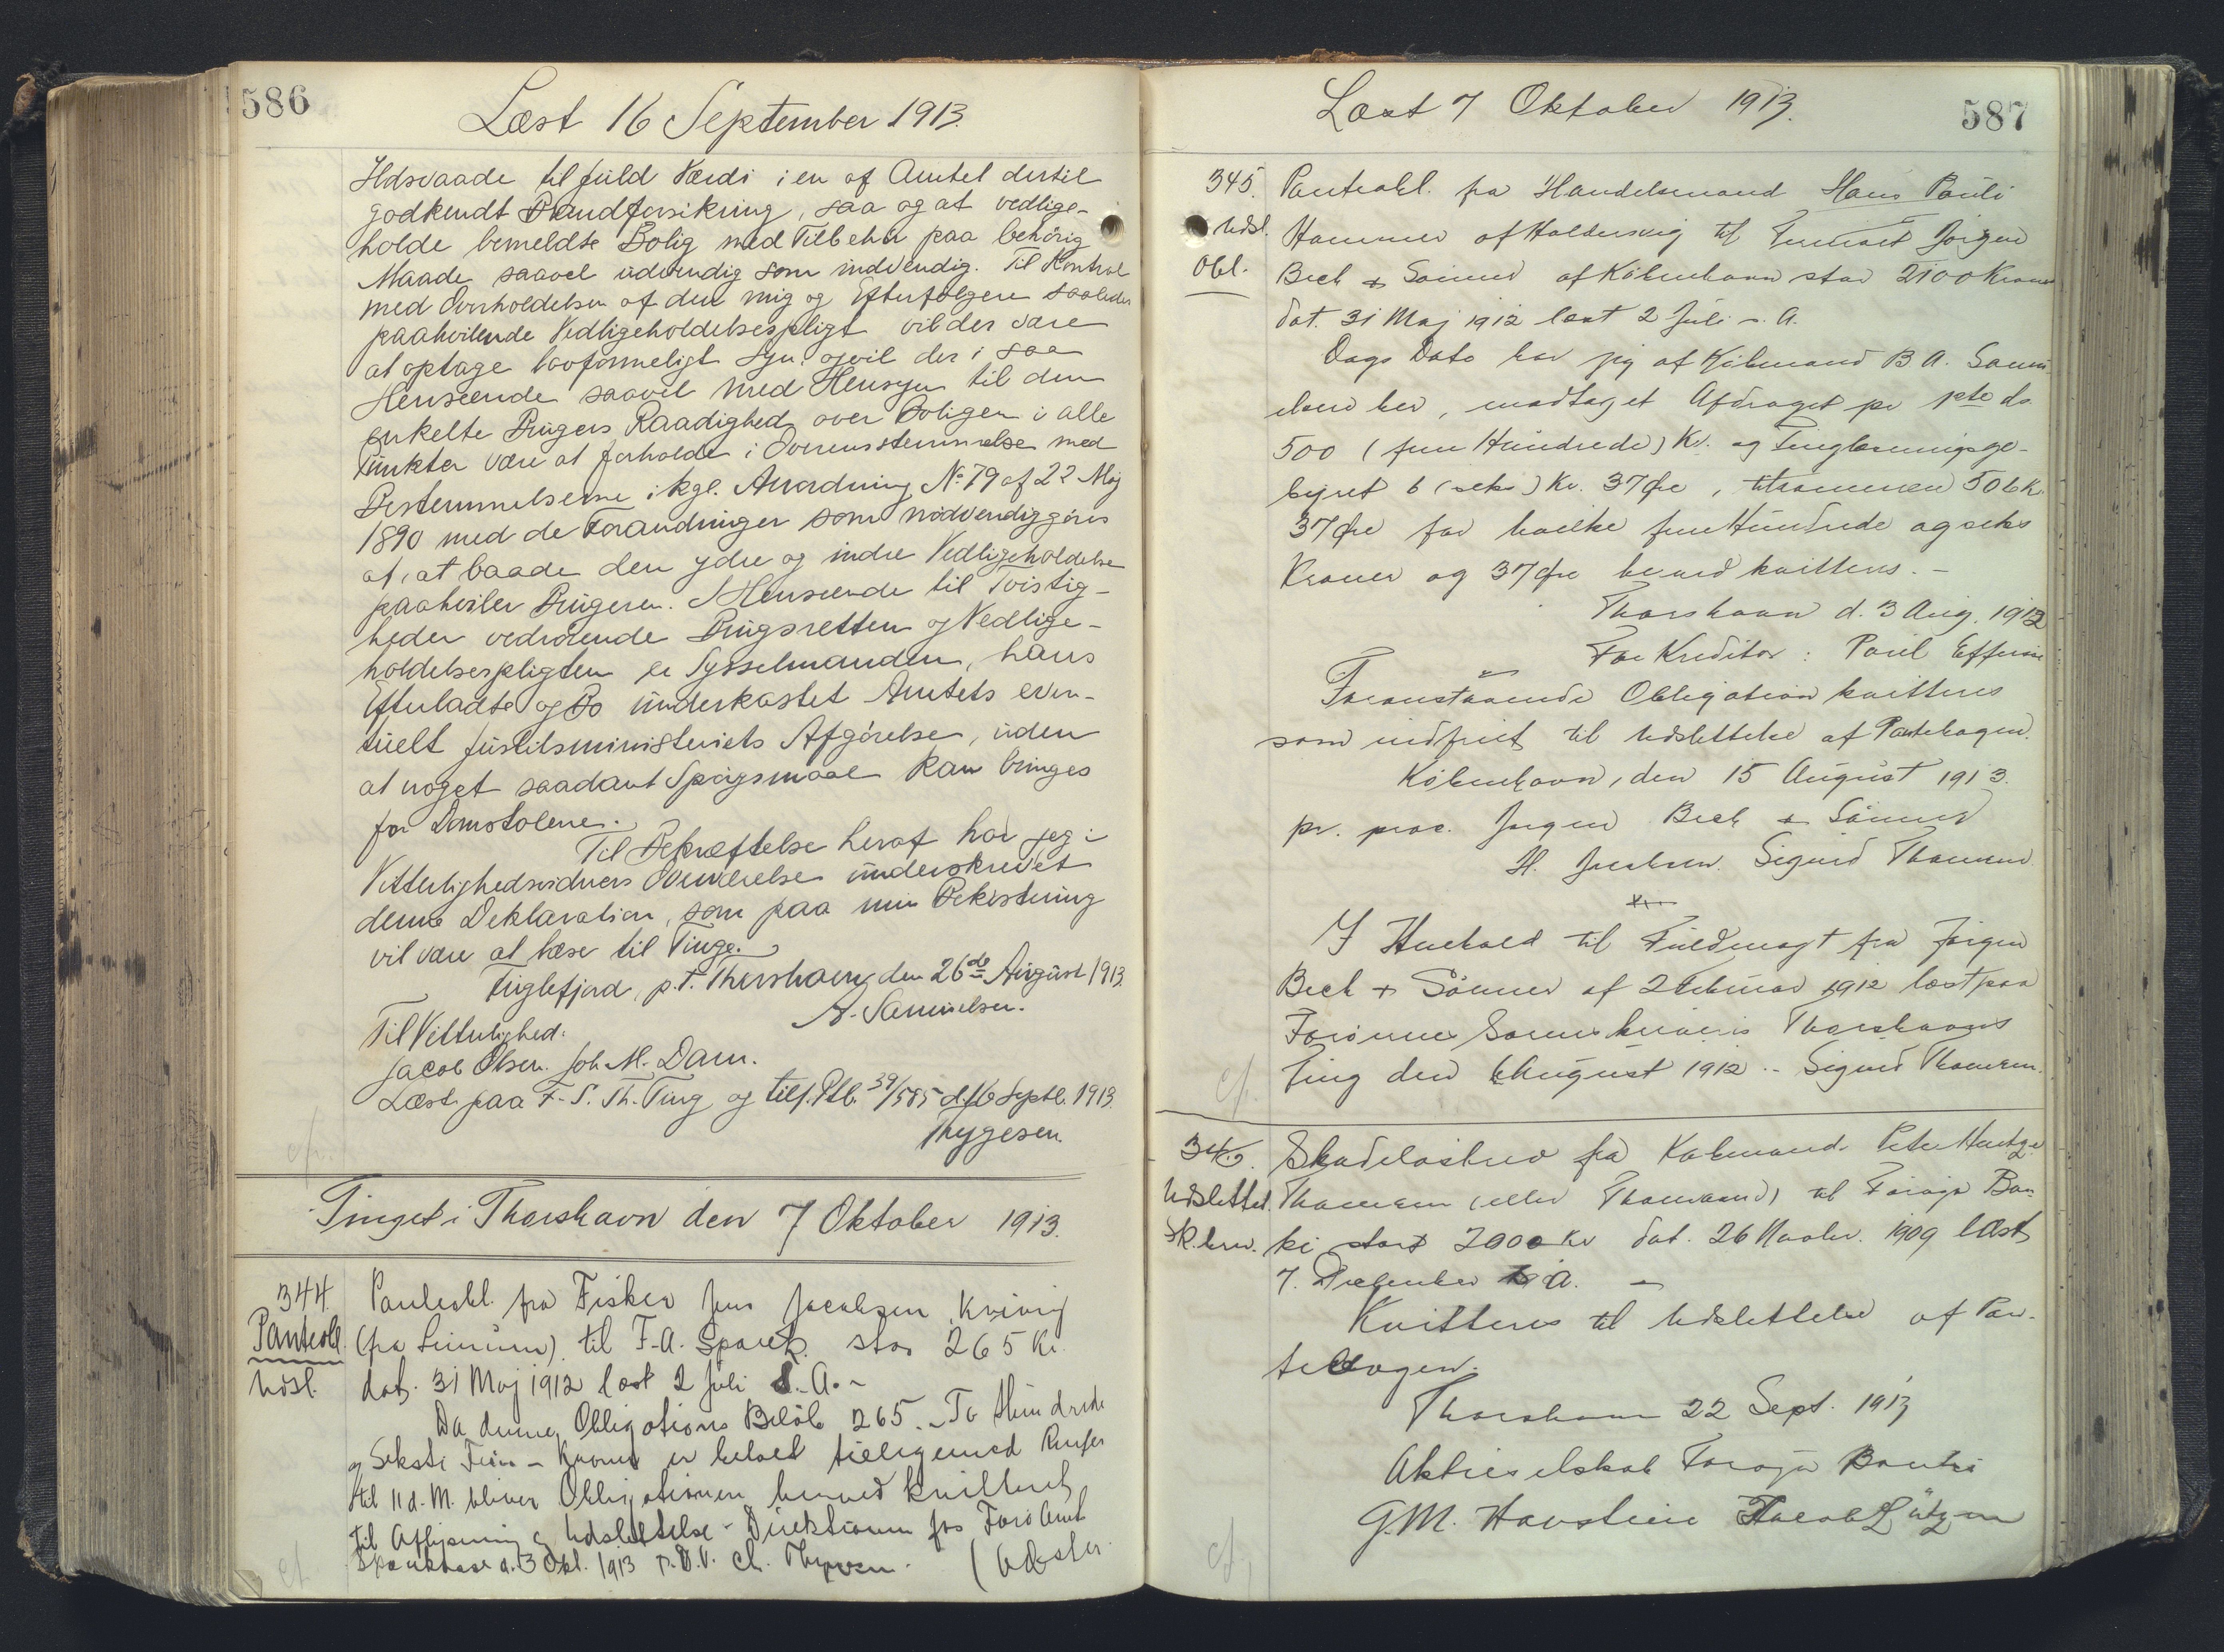 586
Læst 16 September 1913.
Ildsvaade til fuld Værdi i en af Amtet dertil
godkendt Brandforsikring, saa og at vedlige-
holde bemeldte Bolig med Tilbehør paa behørig
Maade saavel udvendig som indvendig. Til Kontrol
med Overholdelsen af den mig og Efterfølgere saaledes
paahvilende Vedligeholdelsespligt vil der være
at optage lovformeligt Syn, og vil der i saa
Henseende saavel med Hensyn til den
enkelte Brugers Raadighed over Boligen i alle
Punkter være at forholde i Overensstemmelse med
Bestemmelserne i kgl. Anordning No 79 af 22 Maj
1890 med de Forandringer som nødvendiggøres
af, at baade den ydre og indre Vedligeholdelse
paahviler Brugeren. I Henseende til Tvistig-
heder vedrørende Brugsretten og Vedlige-
holdelsespligten er Sysselmanden, hans
Efterladte og Bo underkastet Amtets even-
tuelt Justitsministeriets Afgørelse, uden
at noget saadant Spørgsmaal kan bringes
for Domstolene.
Til Bekræftelse heraf har jeg i
Vitterlighedsvidners Overværelse underskrevet
denne Deklaration, som paa min Bekostning
vil være at læse til Tinge.
Fuglefjord, p.t. Thorshavn, den 26de August 1913.
A. Samuelsen.
Til Vitterlighed:
Jacob Olsen. Joh. M. Dam.
Læst paa F. S. Th. Ting og tilf. Ptb. 39/585 d. 16 Septb. 1913.
Thygesen.
cf.
Tinget i Thorshavn den 7 Oktober 1913.
344
Panteobl.
Udsl.
Panteobl. fra Fisker Jens Jacobsen, Kvivig
(fra Leinum) til F.A. Sparek. stor 265 Kr.
dat. 31 Maj 1912 læst 2 Juli s. A. -
Da denne Obligations Beløb 265 - To Hundrede
og Seksti Fem - Kroner er betalt tilligemed Renter
til 11 d. M. bliver Obligationen herved kvitteret
til Aflysning & Udslettelse - Direktionen for Færø Amts
Sparekasse d. 3 Okt. 1913 p. D. V.
cf.
587
Læst 7 Oktober 1913.
345.
Udsl.
Obl.
Panteobl. fra Handelsmand Hans Pauli
Hammer af Haldersvig til Firmaet Jørgen
Bech & Sønner af København stor 2100 Kroner
dat. 31 Maj 1912 læst 2 Juli s. A.
Dags Dato har jeg af Købmand B A. Samu-
elsen her, modtaget Afdraget pr pto do
500 (fem Hundrede) Kr. og Tinglæsningsge-
byret 6 (seks) Kr. 37 Øre, tilsammen 506 Kr.
37 Øre for hvilke fem Hundrede og seks
Kroner og 37 Øre herved kvitteres. -
Thorshavn d. 3 Aug. 1912
For Kreditor: Poul Effersøe
Foranstaaende Obligation kvitteres
som indfriet til Udslettelse af Pantebogen.
København, den 15 August 1913.
pr. proc. Jørgen Bech & Sønner
H. Sigurd Thomsen
I Henhold til Fuldmagt fra Jørgen
Bech & Sønner af 2 Februar 1912 læst paa
Færøernes Sorenskriveris Thorshavns
Ting den 6 August 1912. - Sigurd Thomsen.
cf.
346.
Udslettet.
Sk.brev.
Skadesløsbrev fra Købmand Peter Hentze
Thomsen (eller Thomasen) til Føroya Ban-
ki stort 2000 Kr dat. 26 Novbr. 1909 læst
7. December s. A. -
Kvitteres til Udslettelse af Pan-
tebogen.
Thorshavn 22 Sept. 1913
Aktieselskab Føroya Banki
G.M. Havsteen Jacob Lützen
cf.